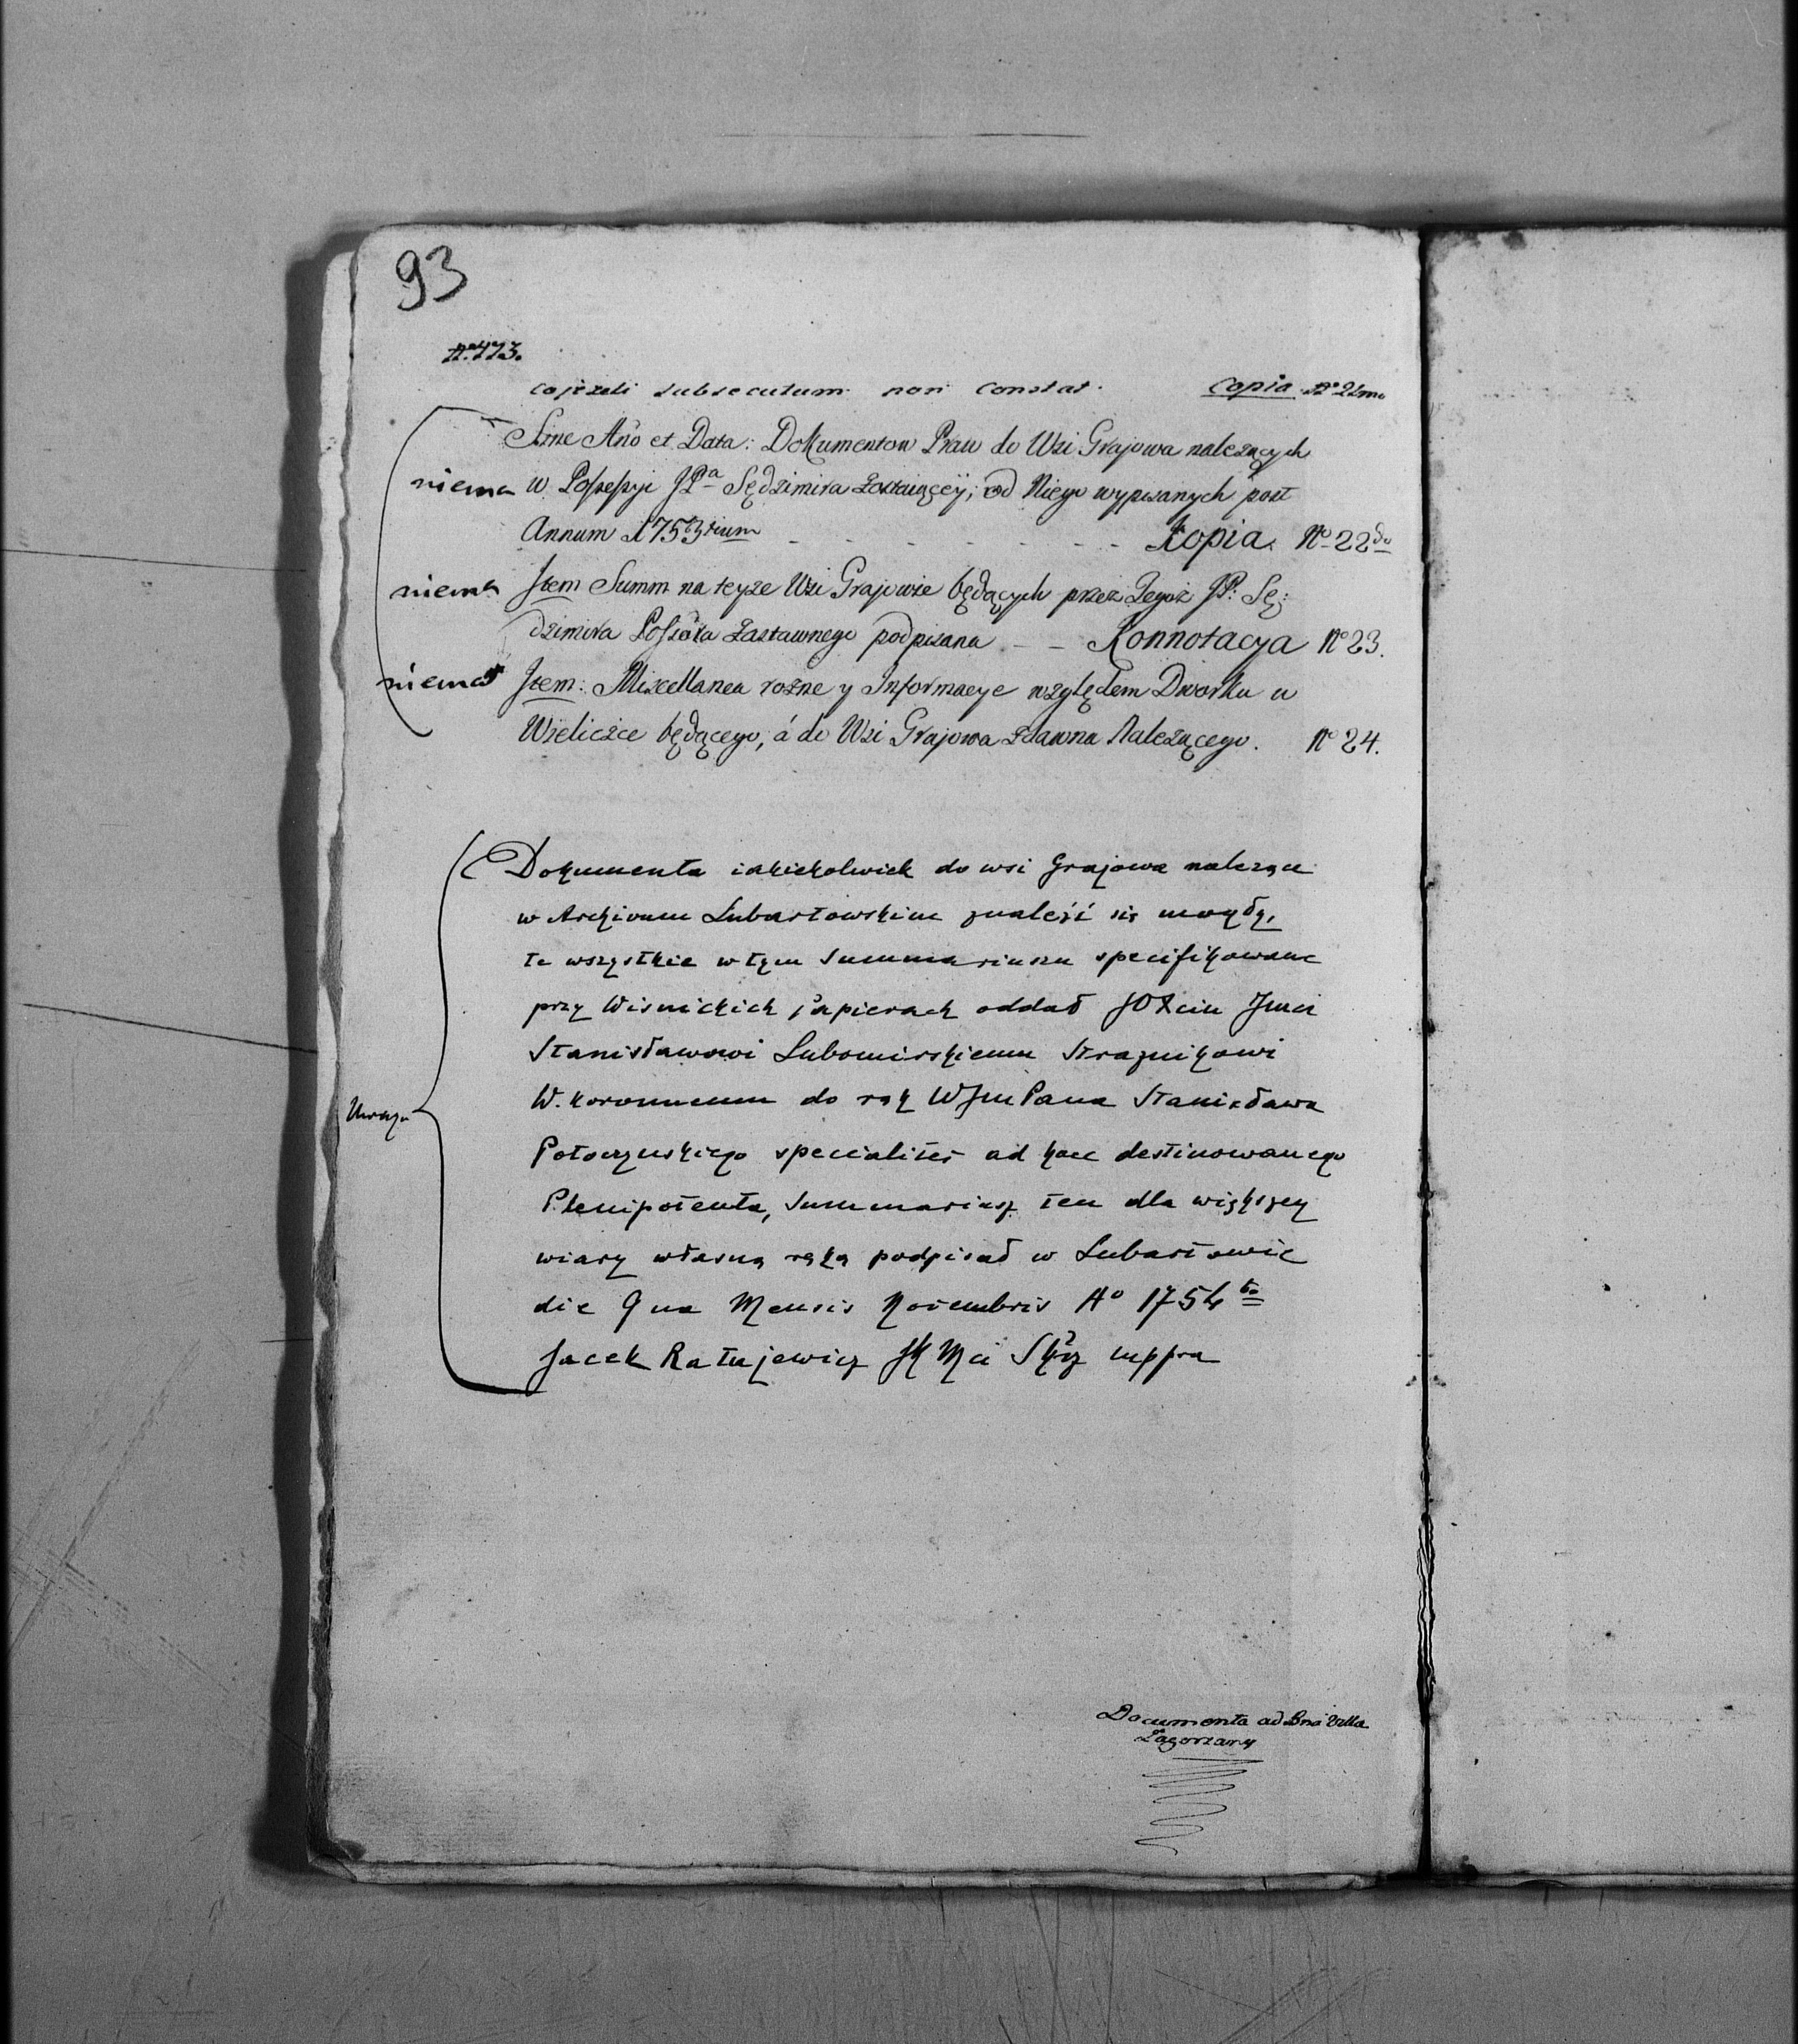 93
No 473.
cojeżeli subsecutum non Constat. Copia No 21mo
Sine Ano et Data: Dokumentow Praw do Wsi Grajowa należących
niema w Possessyi JPa Sędzimira Zostaiącey; od Niego wypisanych post
Annum 1753tium - - - - - - - Kopia. No 22do
niema Item Summ na teyże Wsi Grajowie będących przez Tegoż JP: Sę:
dzimira Possora Zastawnego podpisana - - Konnotacya No 23.
niema Item: Miscellanea rożne y Informacye względem Dworku w
Wieliczce będącego, á do Wsi Grajowa zdawna Należącego. No 24.
Dokumenta iakiekolwiek do wsi Grajowa należące
w Archivum Lubartowskim znaleźć się mogły,
te wszystkie w tym Summariuszu specifikowane
przy Wisnickich papierach oddał JOXciu Jmci
Stanisławowi Lubomirskiemu Strażnikowi
W. koronnemu do rąk WJmPana Stanisława
Potoczynskiego specialiter ad hoc destinowanego
Plenipotenta, Summariusz ten dla większey
wiary własną ręką podpisał w Lubartowie
Uwaga
die 9na Mensis Novembris Ao 1754to
Jacek Ratujewicz JK Mci Skrz mppra
Documenta ad Villa
Zagorzany